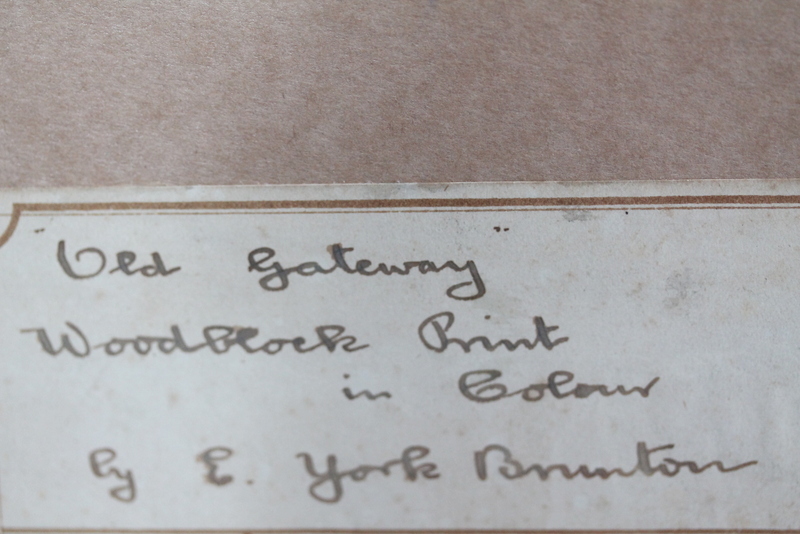 "Old Gateway"
Woodblock Print
in Colour
by E. York Brunton